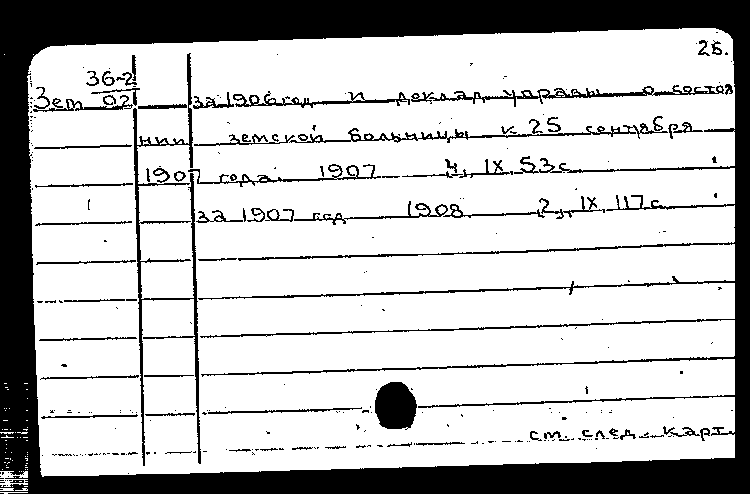 26.
36-2
Зет 02 за 1906 год и доклад управы о состоя
нии земской больницы к 25 сентября
1907 года. 1907 4, IX, 53 с.
за 1907 год 1908 2, IX, 117 с.
см. след. карт.